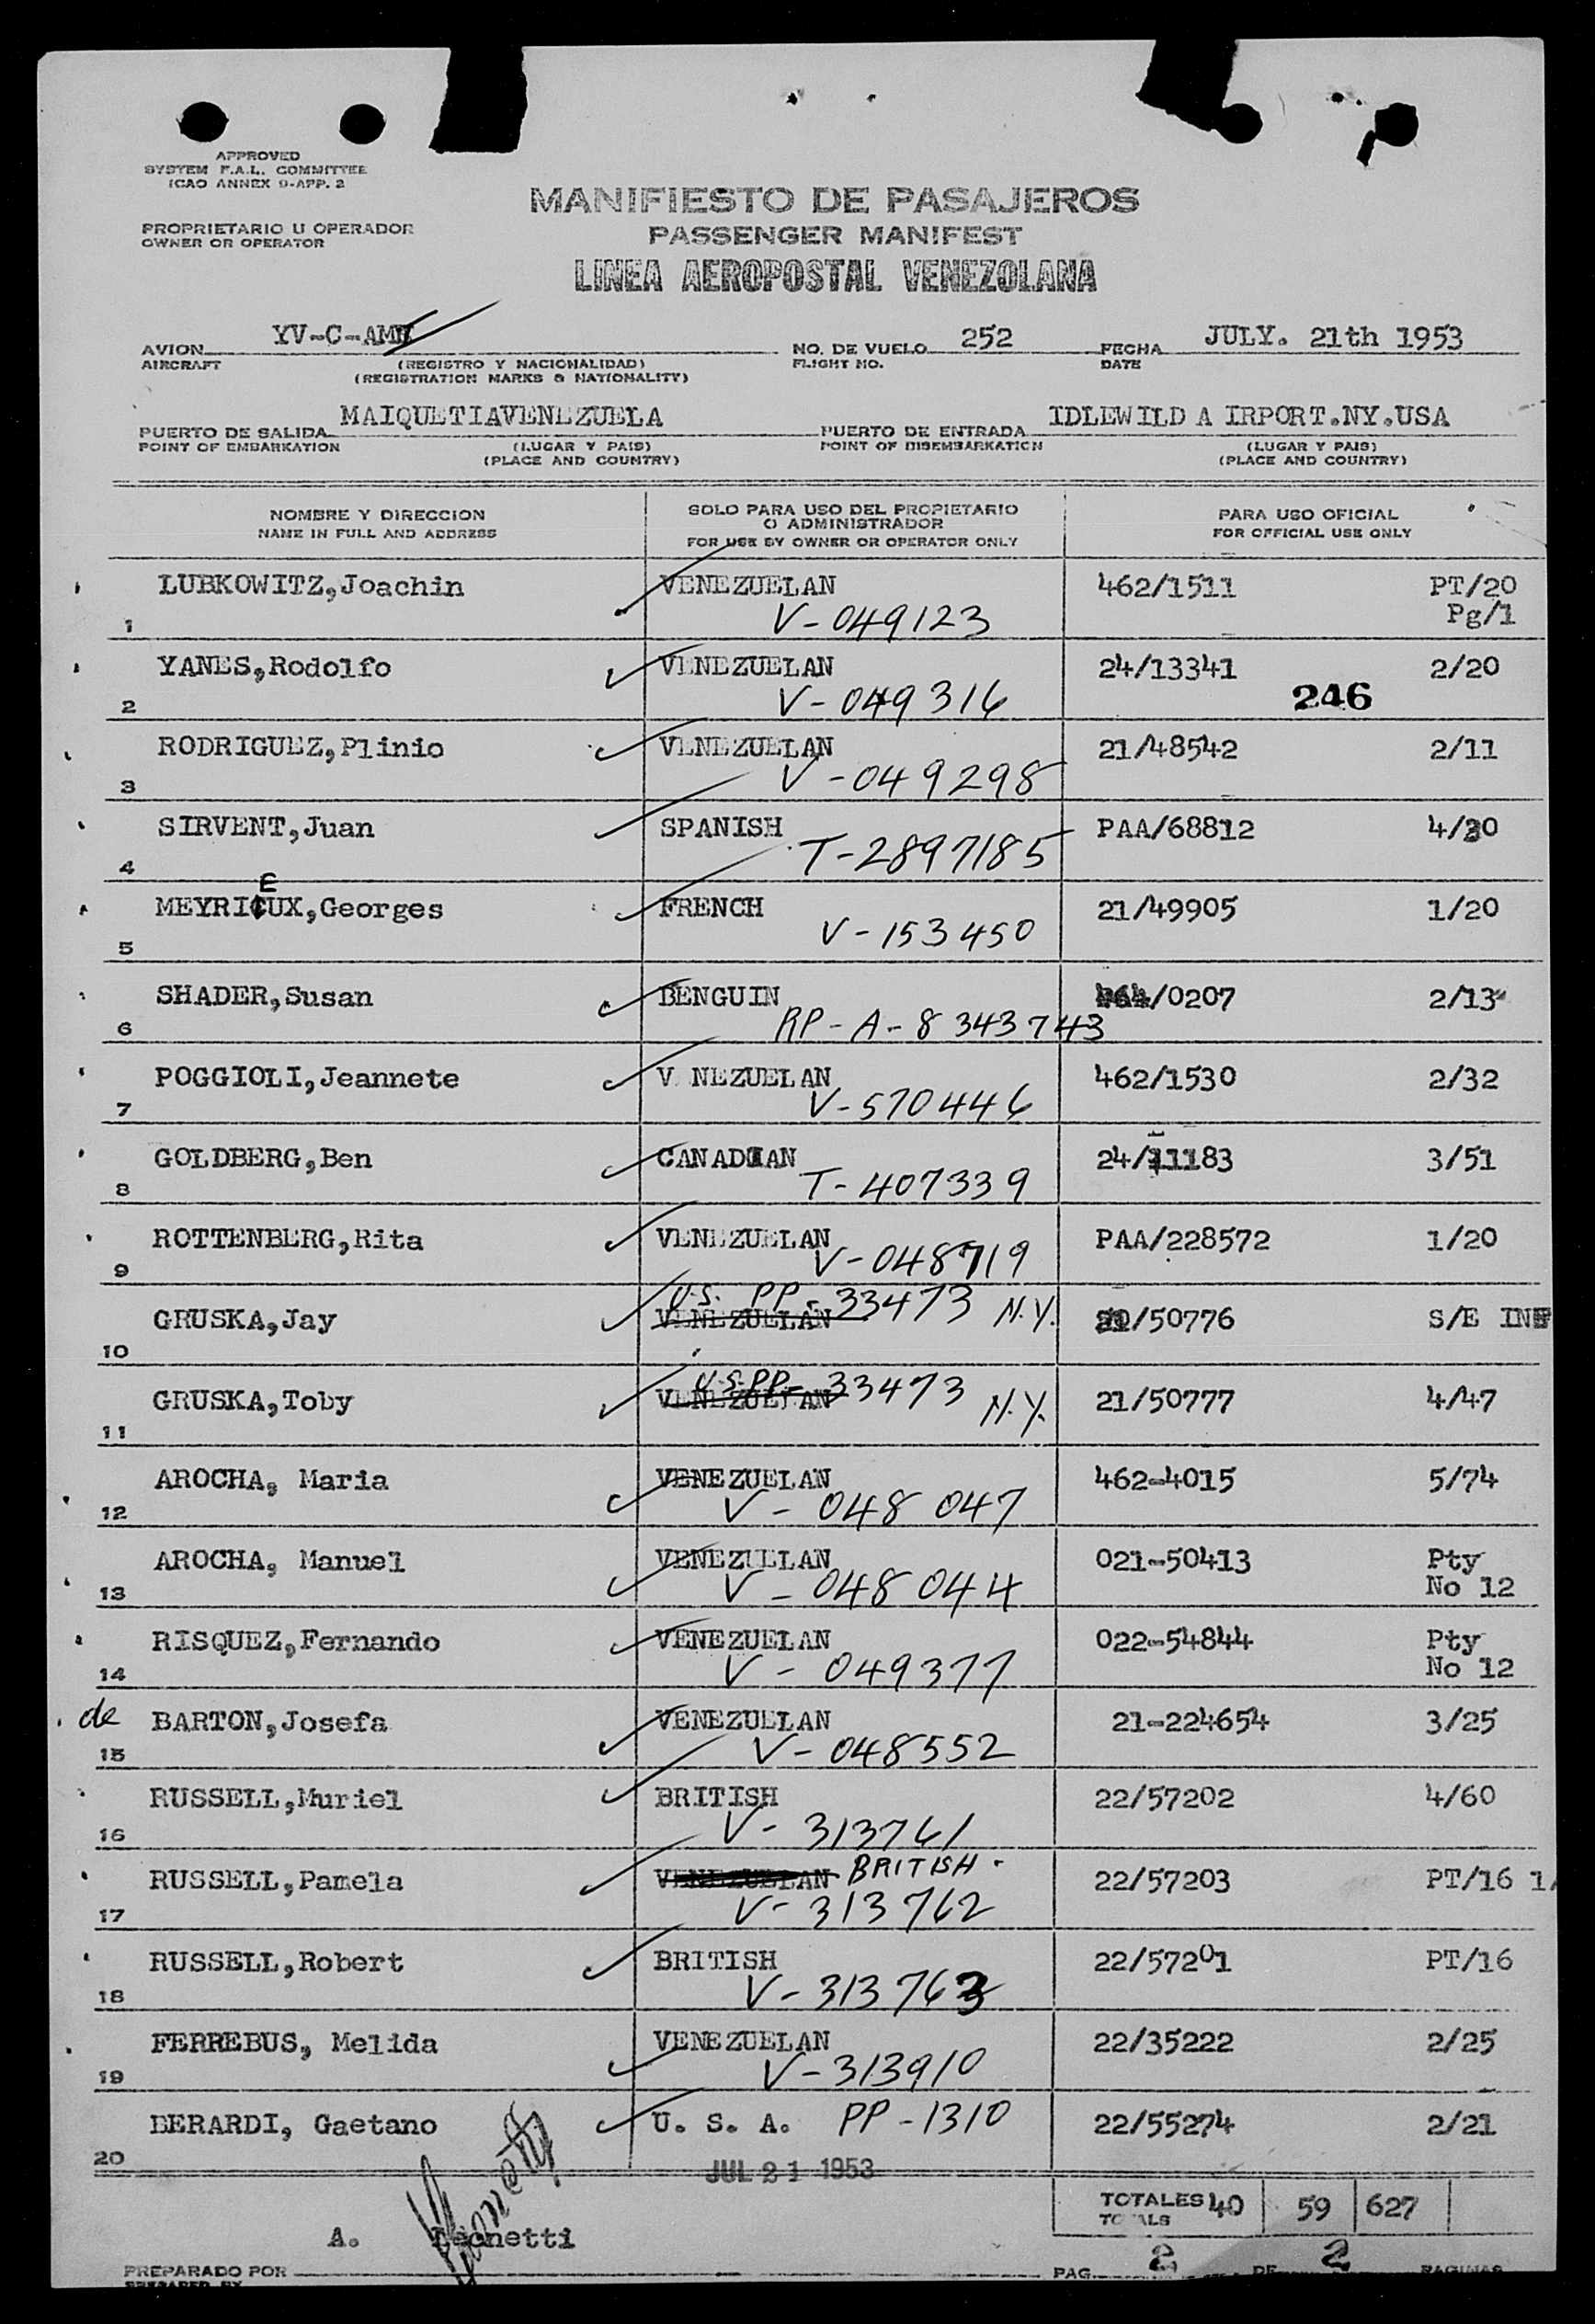 APPROVED
SYSTEM F.A.L. COMMITTEE
ICAO ANNEX 9-APP. 2
MANIFIESTO DE PASAJEROS
PROPRIETARIO U OPERADOR
OWNER OR OPERATOR
PASSENGER MANIFEST
LINEA AEROPOSTAL VENEZOLANA
AVION YV-C-AM NO. DE VUELO 252 FECHA JULY. 21th 1953
AIRCRAFT (REGISTRO Y NACIONALIDAD) FLIGHT NO. DATE
(REGISTRATION MARKS & NATIONALITY)
PUERTO DE SALIDA MAIQUETIAVENEZUELA PUERTO DE ENTRADA IDLEWILD A IRPORT.NY.USA
POINT OF EMBARKATION (LUGAR Y PAIS) POINT OF DISEMBARKATION (LUGAR Y PAIS)
(PLACE AND COUNTRY) (PLACE AND COUNTRY)
NOMBRE Y DIRECCION SOLO PARA USO DEL PROPIETARIO PARA USO OFICIAL
O ADMINISTRADOR
NAME IN FULL AND ADDRESS FOR USE BY OWNER OR OPERATOR ONLY FOR OFFICIAL USE ONLY
LUBKOWITZ,Joachin VENEZUELAN 462/1511 PT/20
1 V-049123 Pg/1
YANES,Rodolfo VENEZUELAN 24/13341 2/20
2 V-049316 246
RODRIGUEZ,Plinio VENEZUELAN 21/48542 2/11
3 V-049298
SIRVENT,Juan SPANISH PAA/68812 4/30
4 T-2897185
E
MEYRIEUX,Georges FRENCH 21/49905 1/20
5 V-153450
SHADER,Susan BENGUIN 464/0207 2/13
6 RP-A-8343743
POGGIOLI,Jeannete V NEZUELAN 462/1530 2/32
7 V-570446
GOLDBERG,Ben CANADIAN 24/11183 3/51
8 T-407339
ROTTENBERG,Rita VENEZUELAN PAA/228572 1/20
9 V-048719
U.S. PP-33473 N.Y.
GRUSKA,Jay VENEZUELAN 21/50776 S/E INF
10
U.S.PP-33473 N.Y.
GRUSKA,Toby VENEZUELAN 21/50777 4/47
11
AROCHA, Maria VENEZUELAN 462-4015 5/74
12 V-048047
AROCHA, Manuel VENEZUELAN 021-50413 Pty
13 V-048044 No 12
RISQUEZ,Fernando VENEZUELAN 022-54844 Pty
14 V-049377 No 12
de BARTON,Josefa VENEZUELAN 21-224654 3/25
15 V-048552
RUSSELL,Muriel BRITISH 22/57202 4/60
16 V-313761
RUSSELL,Pamela VENEZUELAN BRITISH 22/57203 PT/16 1/
17 V-313762
RUSSELL,Robert BRITISH 22/57201 PT/16
18 V-313763
FERREBUS, Melida VENEZUELAN 22/35222 2/25
19 V-313910
BERARDI, Gaetano U. S. A. PP-1310 22/55274 2/21
20 JUL 21 1953
TOTALES 40 59 627
TOTALS
A. Leonetti
PREPARADO POR PAG. 2 DE 2 PAGINAS
PREPARED BY